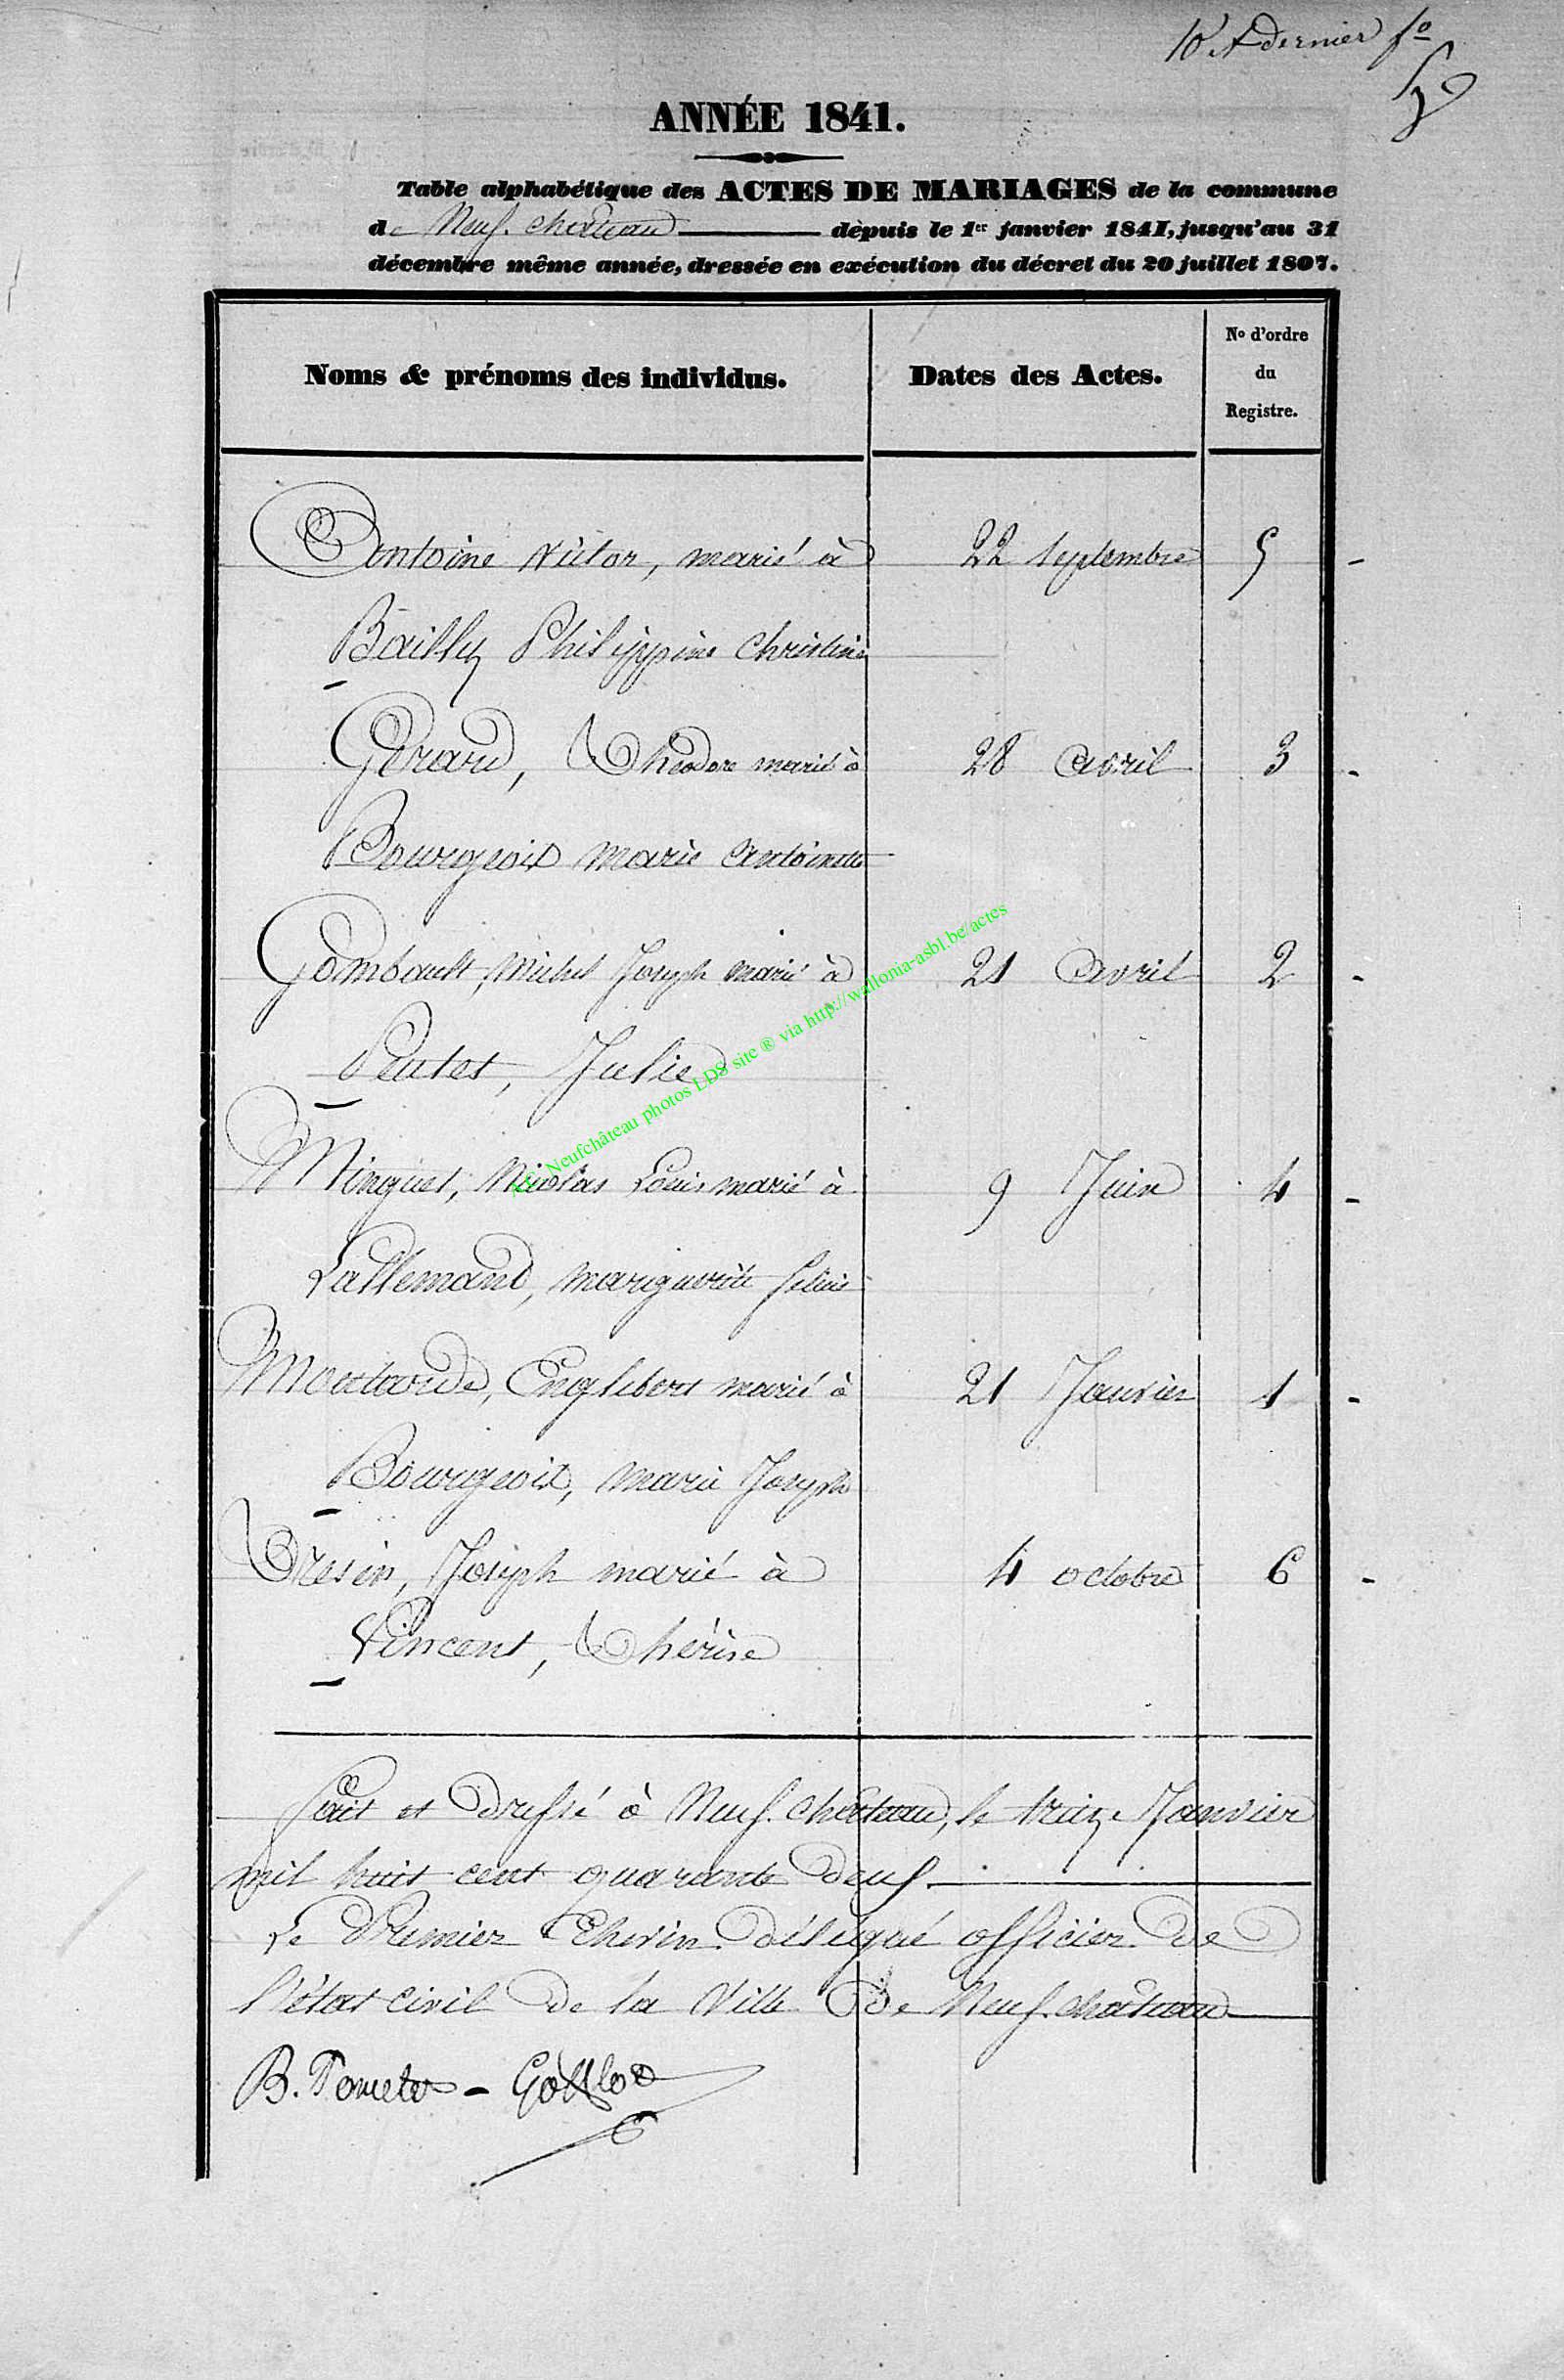 10e & dernier fo
ANNÉE 1841.
Table alphabétique des ACTES DE MARIAGES de la commune
de Neuf-château depuis le 1er janvier 1841, jusqu'au 31
décembre même année, dressée en exécution du décret du 20 juillet 1807.
Noms & prénoms des individus.
Dates des Actes.
No d'ordre
du
Registre.
Antoine Victor, marié à 22 septembre 5
Bailly Philippine Christine
Gérard, Théodore marié à 28 avril 3
Bourgeois marie antoinette
Gombault, Michel Joseph marié à 21 avril 2
Julie
Minguet, Nicolas Louis marié à 9 Juin 4
Lallemand, marguerite
Moutarde, Englebert marié à 21 Janvier 1
Bourgeois, marie Joseph
Tresin, Joseph marié à 4 octobre 6
Vincent, Thérèse
Fait et dressé à Neuf-château, le treize Janvier
mil huit cent quarante deux.
Le Premier Echevin délégué officier de
l'état civil de la Ville de Neuf-château
B.
Neufchâteau photos LDS site ® via http://wallonia-asbl.be/actes